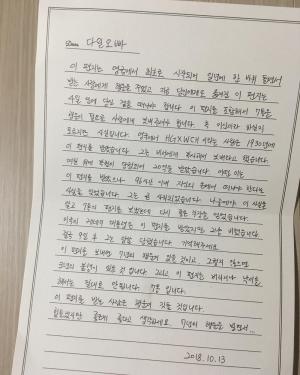 Dear 다일오빠
이 편지는 영국에서 최초로 시작되어 일년에 한 바퀴 돌면서
받는 사람에게 행운을 주었고 지금 당신에게로 옮겨진 이 편지는
4일 안에 당신 곁을 떠나야 합니다. 이 편지를 포함해서 7통을
행운이 필요한 사람에게 보내주셔야 합니다. 혹 미신이라 하실지
모르지만 사실입니다. 영국에서 HGXWCH 이라는 사람은 1930년에
이 편지를 받았습니다. 그는 비서에게 복사해서 보내라고 했습니다.
며칠 뒤에 복권이 당첨되어 20억을 받았습니다. 어떤 이는
이 편지를 받았으나 96시간 이내 자신의 손에서 떠나야 한다는
사실을 잊었습니다. 그는 곧 사직되었습니다. 나중에야 이 사실을
알고 7통의 편지를 보냈는데 다시 좋은 직장을 얻었습니다.
미국의 케네디 대통령은 이 편지를 받았지만 그냥 버렸습니다.
결국 9일 후 그는 암살 당했습니다. 기억해주세요.
이 편지를 보내면 7년의 행운이 있을 것이고, 그렇지 않으면
3년의 불행이 있을 것입니다. 그리고 이 편지를 버리거나 낙서를
해서는 절대로 안됩니다. 7통입니다.
이 편지를 받은 사람은 행운이 깃들 것입니다.
힘들겠지만 좋은게 좋다고 생각하세요. 7년의 행운을 빌면서...
2018.10.13